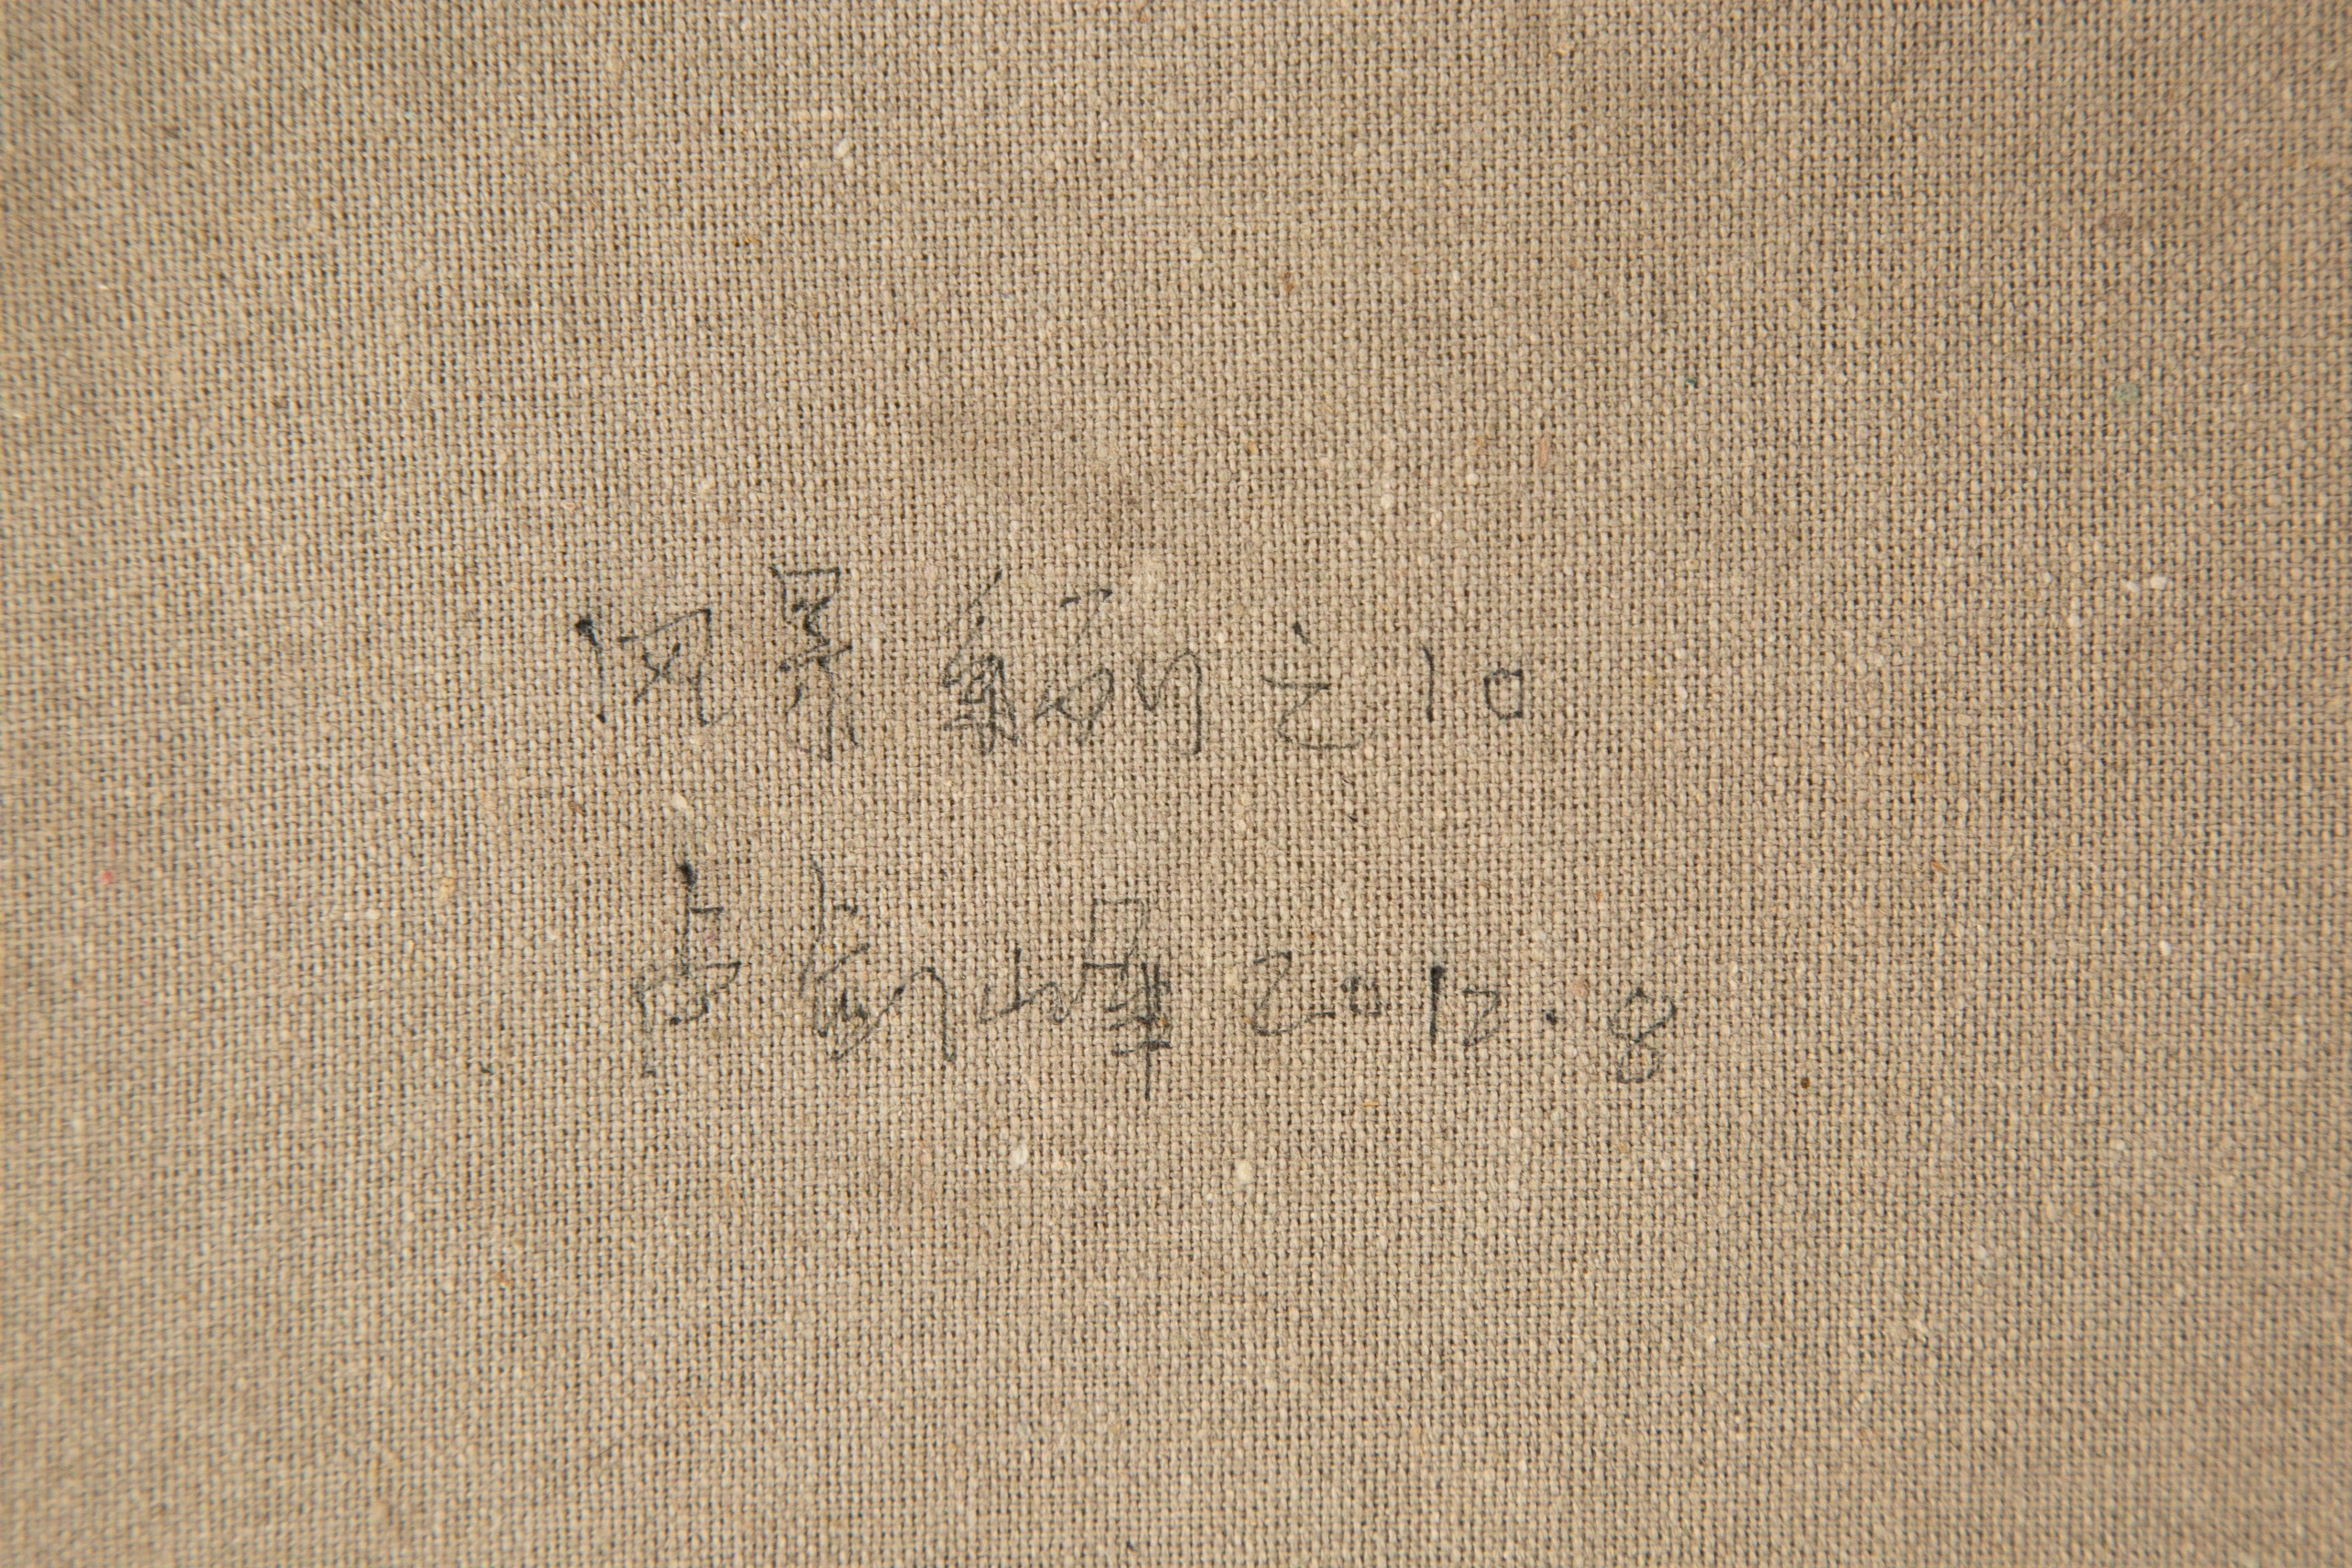 风景系列之10
卢 2012.8